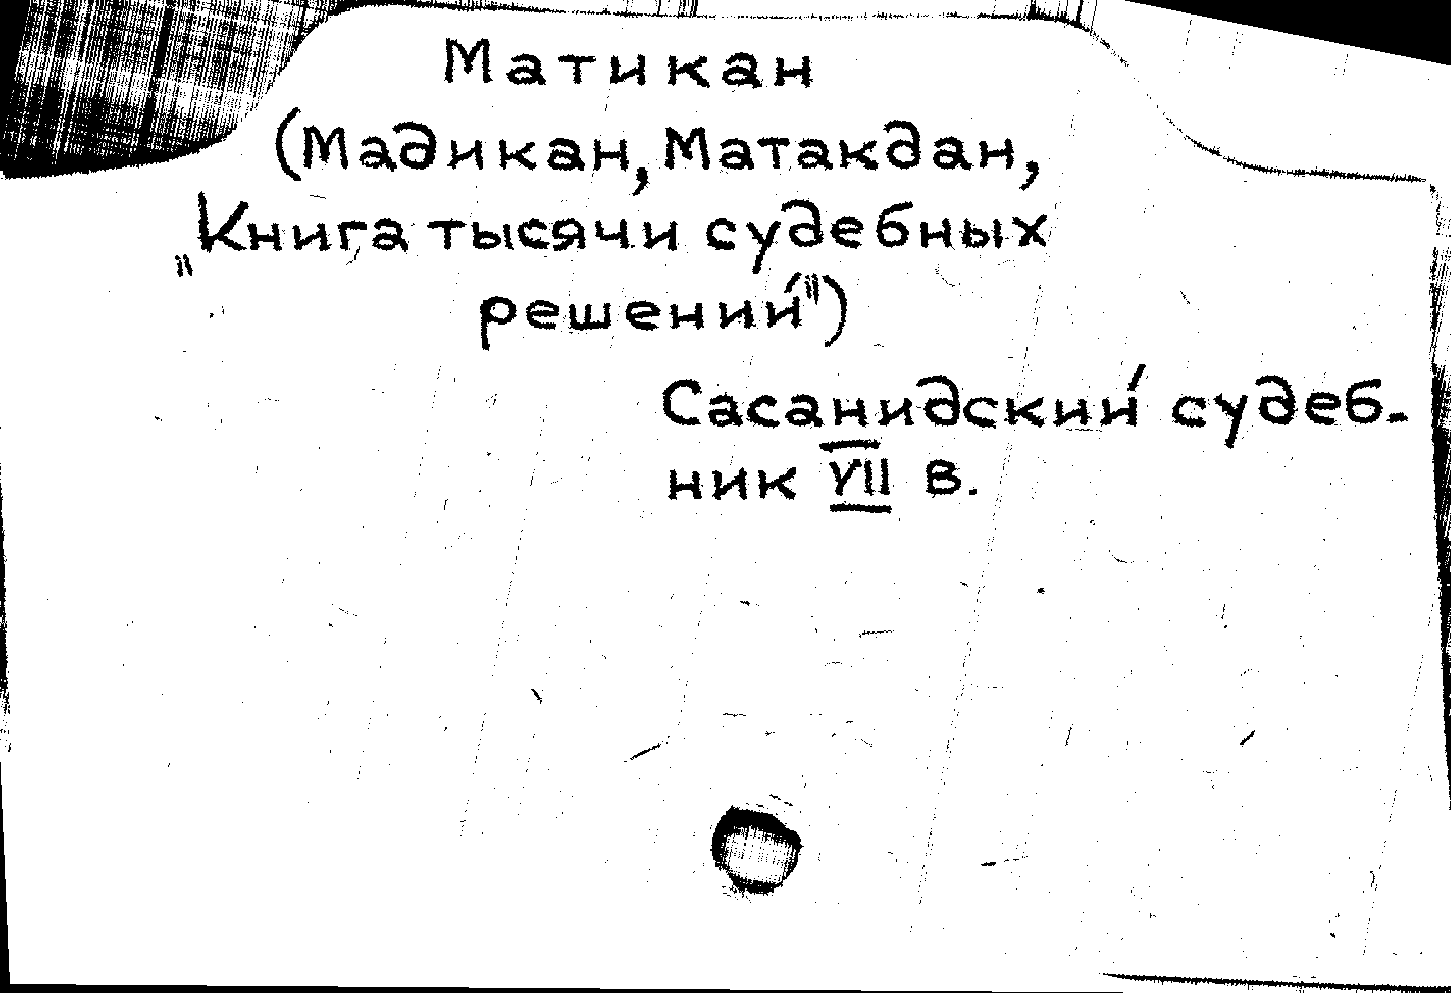 Матикан
(Мадикан, Матакдан,
„Книга тысячи судебных
решений")
Сасанидский судеб-
ник VII в.